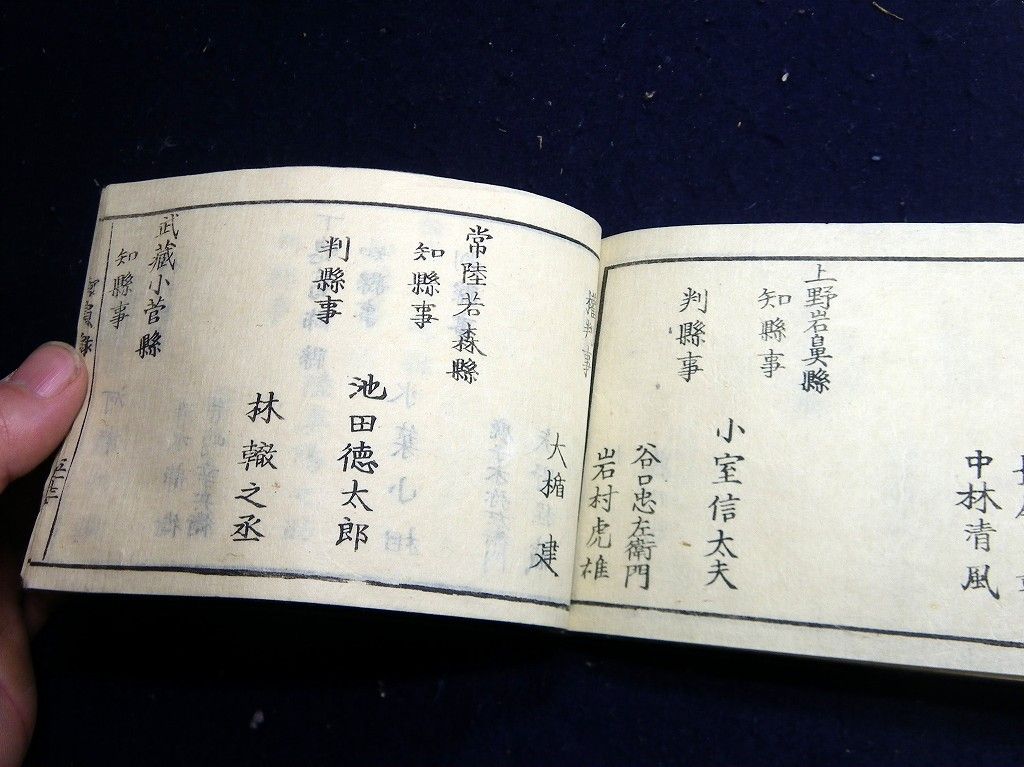 中林清風
上野岩鼻縣
知縣事
小室信太夫
判縣事
谷口忠左衛門
岩村虎雄
權判事
大楯建
常陸若森縣
知縣事
池田徳太郎
判縣事
林轍之丞
武藏小菅縣
知縣事